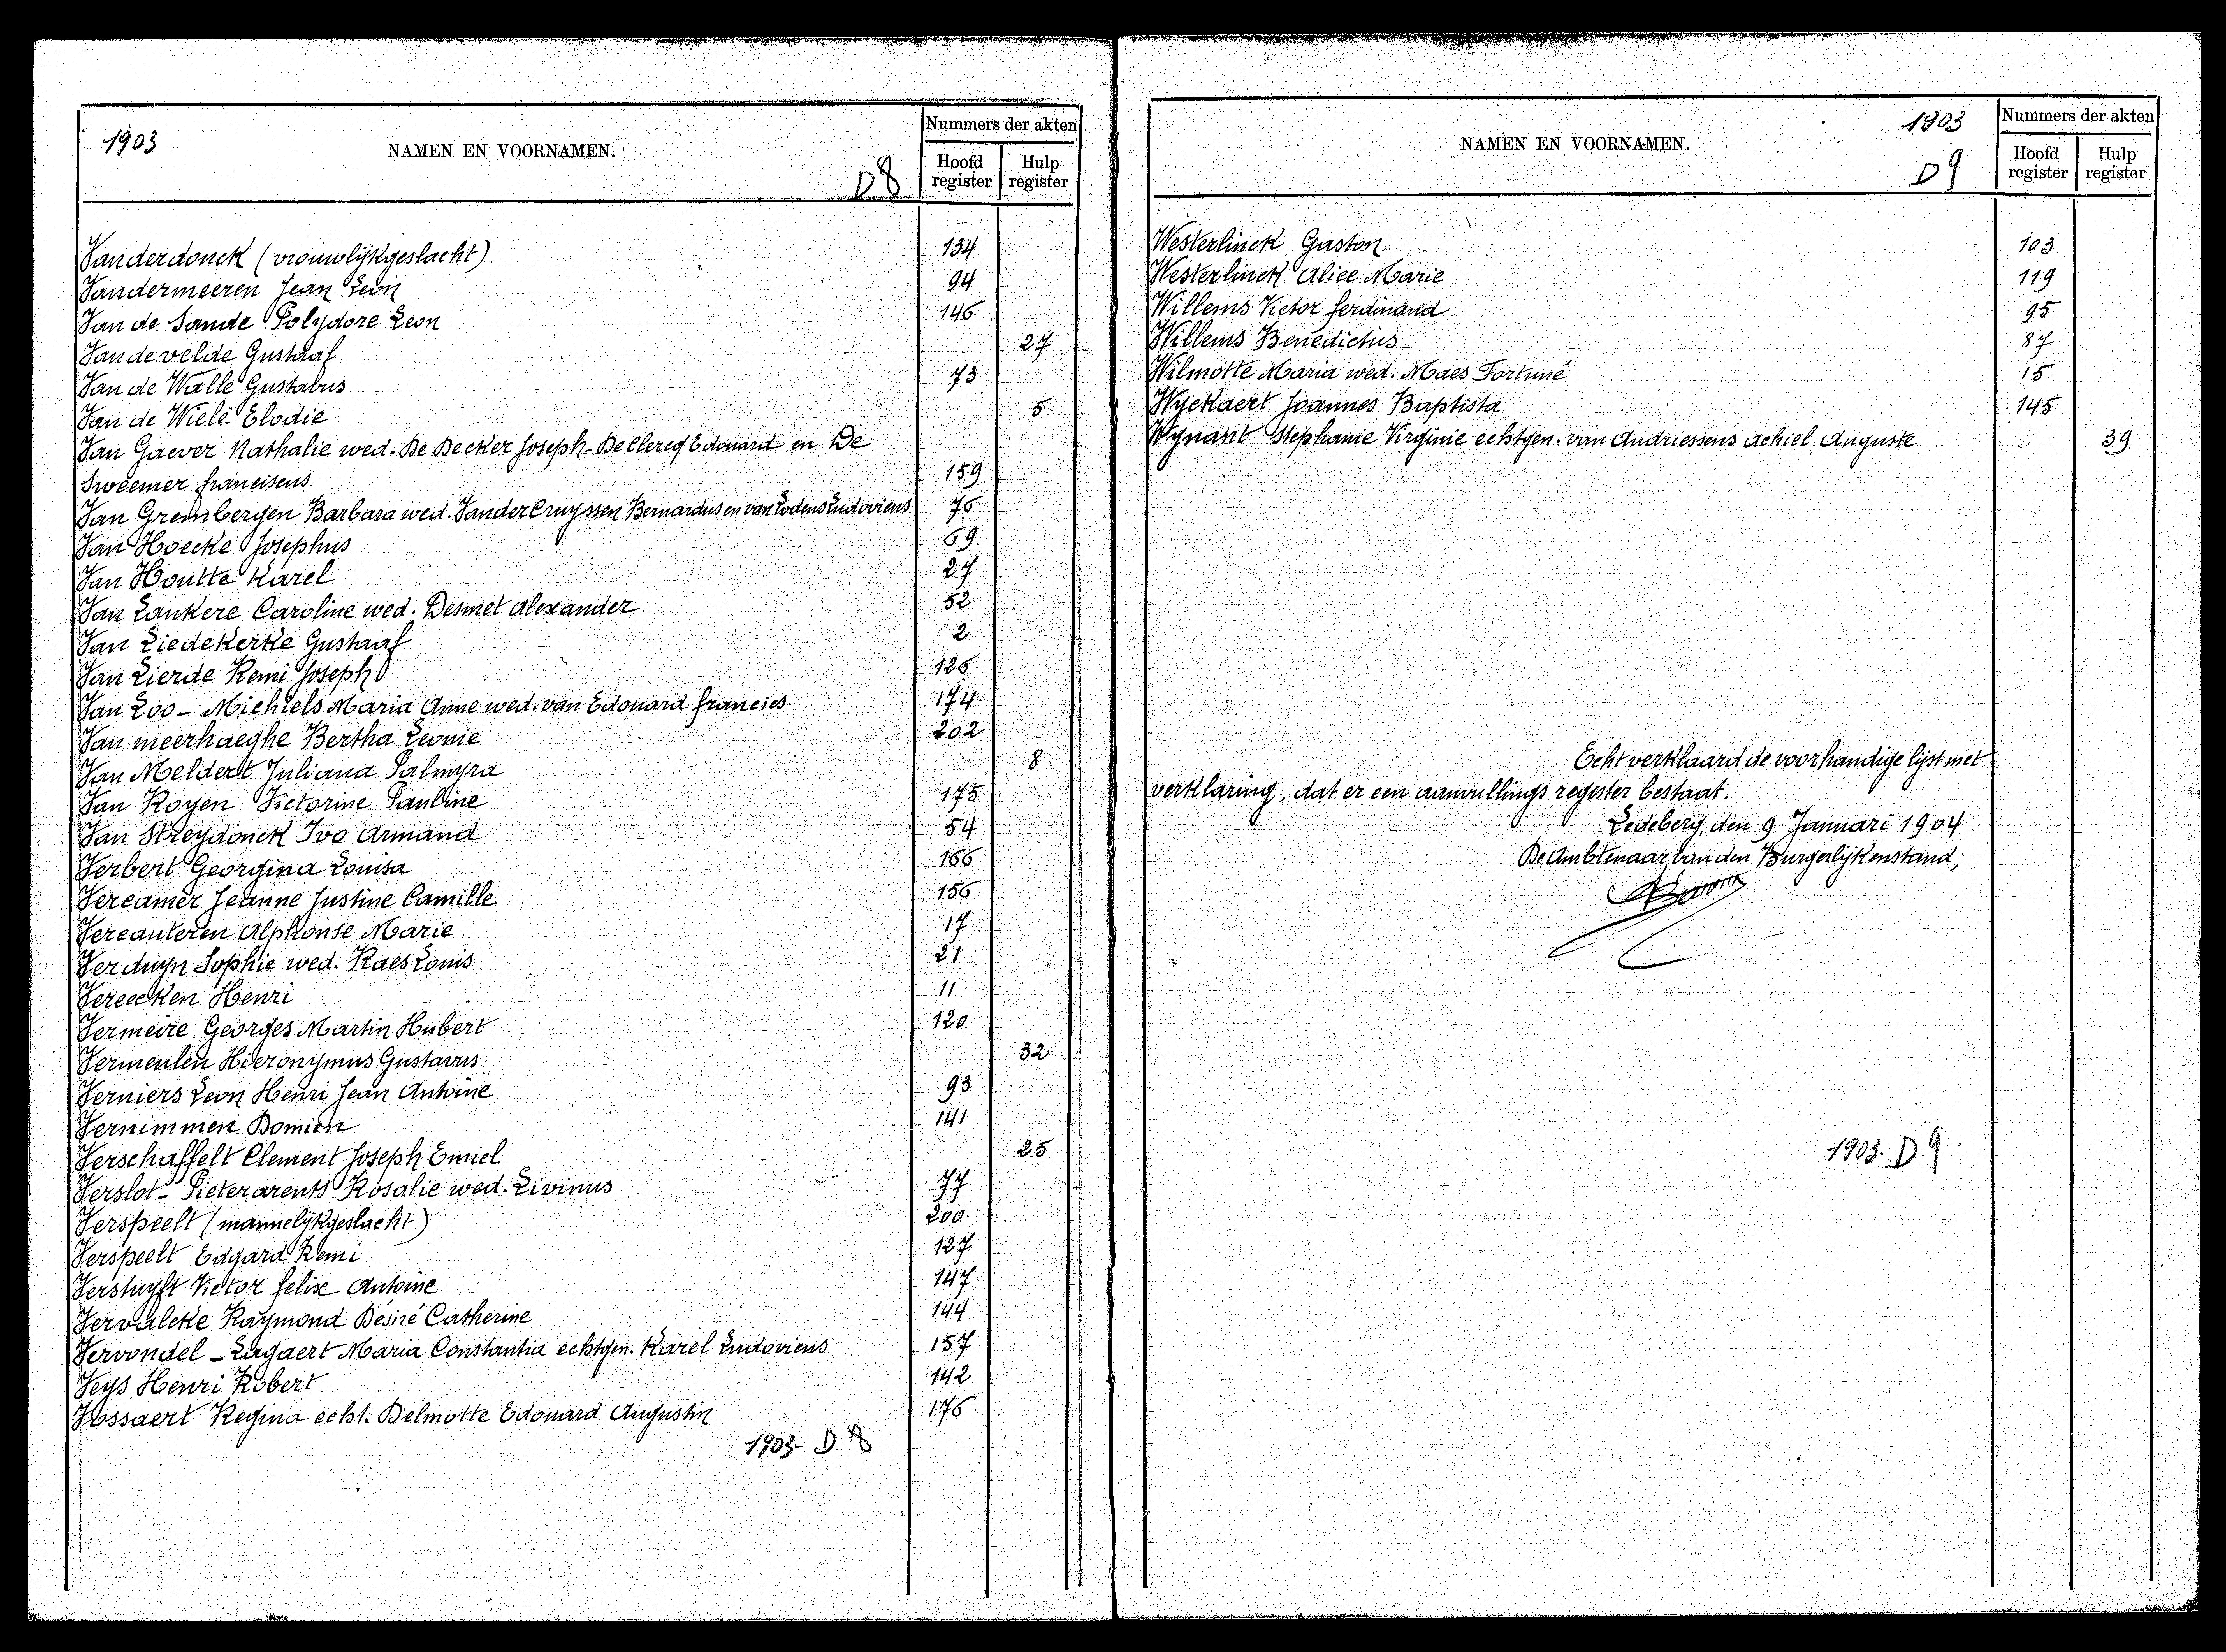 1903
NAMEN EN VOORNAMEN.
D8
Nummers der akten
Hoofd register
Hulp register
Vanderdonck (vrouwlijkgeslacht) 134
Vandermeeren Jean Leon 94
Van de Sande Polydore Leon 146
Vandevelde Gustaaf 27
Van de Walle Gustavus 73
Van de Wiele Elodie 5
Van Gaever Nathalie wed. De Decker Joseph - De Clercq Edouard en De
Sweemer franciscus. 159
Van Grembergen Barbara wed. VanderCruyssen Bernardus en van Lodens Ludovicus 76
Van Hoecke Josephus 69
Van Houtte Karel 27
Van Lankere Caroline wed. Desmet Alexander 52
Van Liedekerke Gustaaf 2
Van Lierde Remi Joseph 126
Van Loo - Michiels Maria Anne wed. van Edouard francies 174
Van meerhaeghe Bertha Leonie 202
Van Meldert Juliana Palmyra 8
Van Royen Victorine Pauline 175
Van Streydonck Ivo Armand 54
Verbert Georgina Louisa 166
Vercamer Jeanne Justine Camille 156
Vercauteren Alphonse Marie 17
Verduyn Sophie wed. Raes Louis 21
Vereecken Henri 11
Vermeire Georges Martin Hubert 120
Vermeulen Hieronymus Gustavus 32
Verniers Leon Henri Jean Antoine 93
Vernimmen Domien 141
Verschaffelt Clement Joseph Emiel 25
Verslot - Pieterarents Rosalie wed. Livinus 77
Verspeelt (mannelijkgeslacht) 200
Verspeelt Edgard Remi 127
Verstuyft Victor felix Antoine 147
Vervalcke Raymond Désiré Catherine 144
Vervondel - Lagaert Maria Constantia echtgen. Karel Ludovicus 157
Veys Henri Robert 142
Vossaert Regina echt. Delmotte Edouard Augustin 176
1903- D 8
NAMEN EN VOORNAMEN.
1903
D9
Nummers der akten
Hoofd register
Hulp register
Westerlinck Gaston 103
Westerlinck Alice Marie 119
Willems Victor ferdinand 95
Willems Benedictus 87
Wilmotte Maria wed. Maes Fortuné 15
Wyckaert Joannes Baptista 145
Wynant Stephanie Virginie echtgen. van Andriessens Achiel Auguste 39
Echt verklaard de voorhandige lijst met
verklaring, dat er een aanvullings register bestaat.
Ledeberg, den 9 Januari 1904
De Ambtenaar van den Burgerlijkenstand,
1903- D9